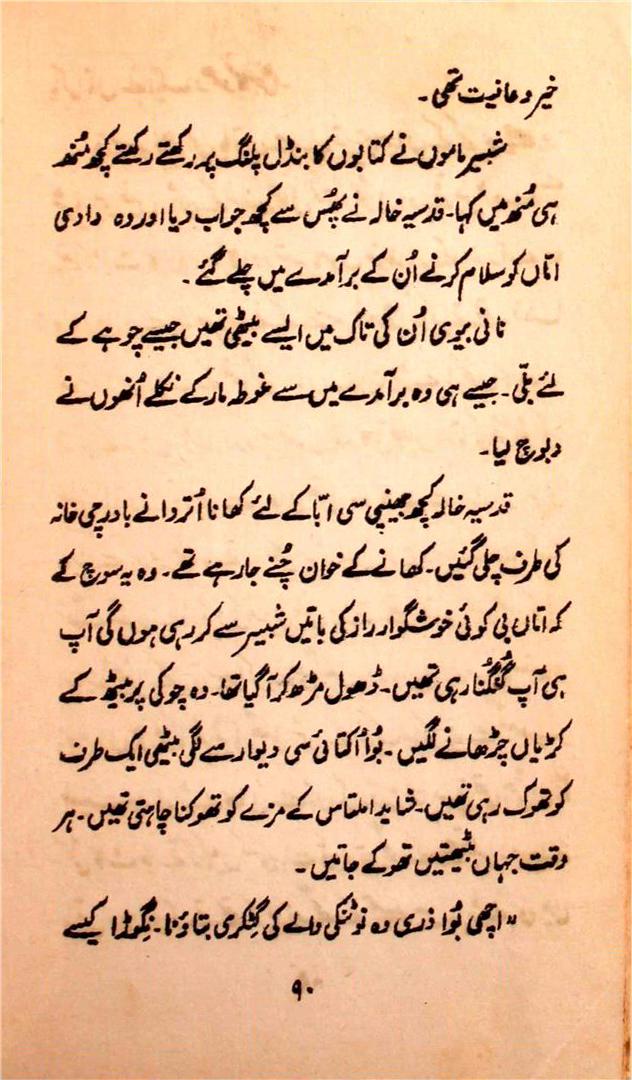 خیر و عافیت تھی۔
شبیر ماموں نے کتابوں کا بنڈل پلنگ پر رکھتے رکھتے کچھ مُنھ
ہی مُنھ میں کہا۔ قدسیہ خالہ نے پھُس سے کچھ جواب دیا اور وہ دادی
امّاں کو سلام کرنے اُن کے برآمدے میں چلے گئے۔
نانی بیوی اُن کی تاک میں ایسے بیٹھی تھیں جیسے چوہے کے
لئے بلّی۔ جیسے ہی وہ برآمدے میں سے غوطہ مار کے نکلے اُنھوں نے
دبوچ لیا۔
قدسیہ خالہ کچھ جھینپی سی ابّا کے لئے کھانا اُتروانے باورچی خانہ
کی طرف چلی گئیں۔ کھانے کے خوان چُنے جا رہے تھے۔ وہ یہ سوچ کے
کہ امّاں بی کوئی خوشگوار راز کی باتیں شبیر سے کر رہی ہوں گی آپ
ہی آپ گُنگُنا رہی تھیں۔ ڈھول مڑھ کر آ گیا تھا۔ وہ چوکی پر بیٹھ کے
کڑیاں چڑھانے لگیں۔ بُوا اُکتائی سی دیوار سے لگی بیٹھی ایک طرف
کو تھوک رہی تھیں۔ شاید املتاس کے مزے کو تھوکنا چاہتی تھیں۔ ہر
وقت جہاں بیٹھتیں تھوکے جاتیں۔
"اچھی بُوا ذری وہ نوٹنکی والے کی گِٹکری بتاؤنا۔ نِگوڑا کیسے
۹۰